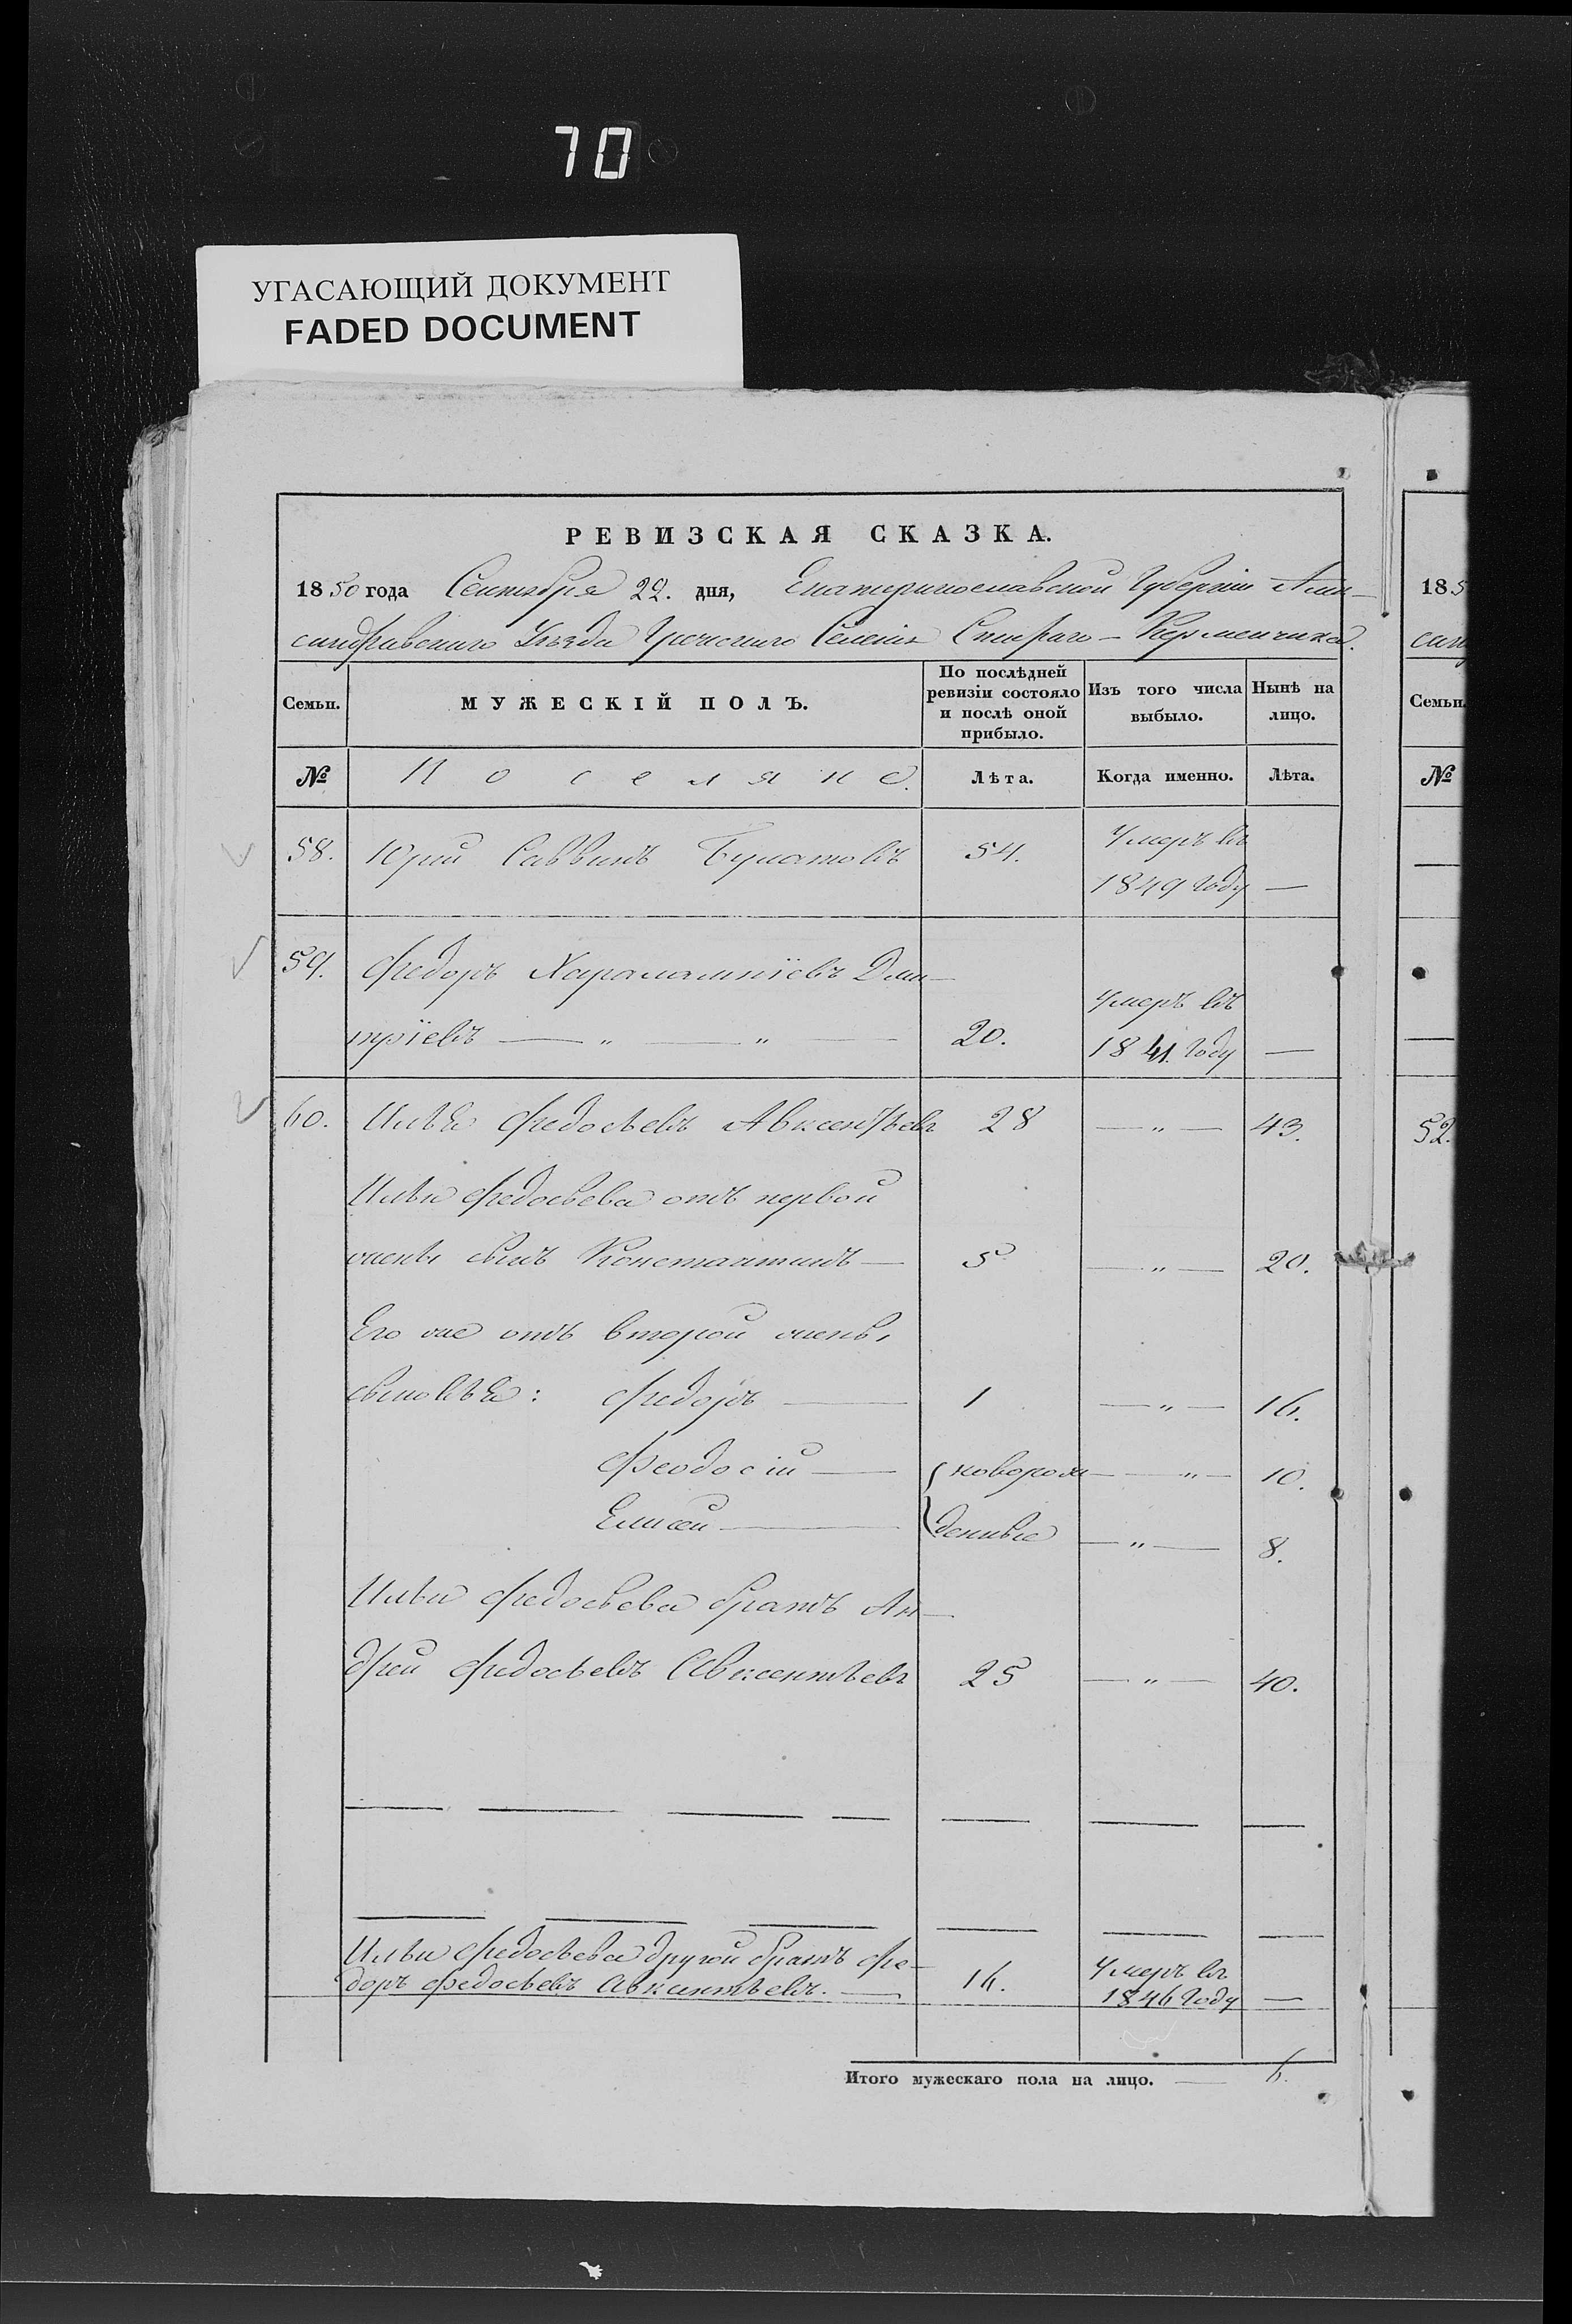 70
УГАСАЮЩИЙ ДОКУМЕНТ
FADED DOCUMENT
РЕВИЗСКАЯ СКАЗКА.
1850 года Сентября 22. дня, Екатеринославской Губерніи Алек-
сандравскаго Уѣзда Греческаго Селенія Стараго-Керменчика.
Семьи. МУЖЕСКІЙ ПОЛЪ. По послѣдней ревизіи состояло и послѣ оной прибыло. Изъ того числа выбыло. Нынѣ на лицо.
№ Поселяне. Лѣта. Когда именно. Лѣта.
58. Юрій Саввинъ Булатовъ 54. Умеръ въ
1849 году —
59. Федоръ Харалампіевъ Дми-
тріевъ — „ — „ — 20. Умеръ въ 1841. году —
60. Илья Федосѣевъ Авксентьевъ 28 — „ — 43.
Ильи Федосѣева отъ первой
жены сынъ Константинъ — 5 — „ — 20.
Его же отъ второй жены,
сыновья: Федоръ — 1 — „ — 16.
Феодосій — новорож- — „ — 10.
Елисей — денные — „ — 8.
Ильи Федосѣева братъ Ан-
дрей Федосѣевъ Авксентьевъ 25 — „ — 40.
Ильи Федосѣева другой братъ Фе-
доръ Федосѣевъ Авксентьевъ. — 16. Умеръ въ 1846 году —
Итого мужескаго пола на лицо. — 6.
185
сан
Семьи.
№
52.